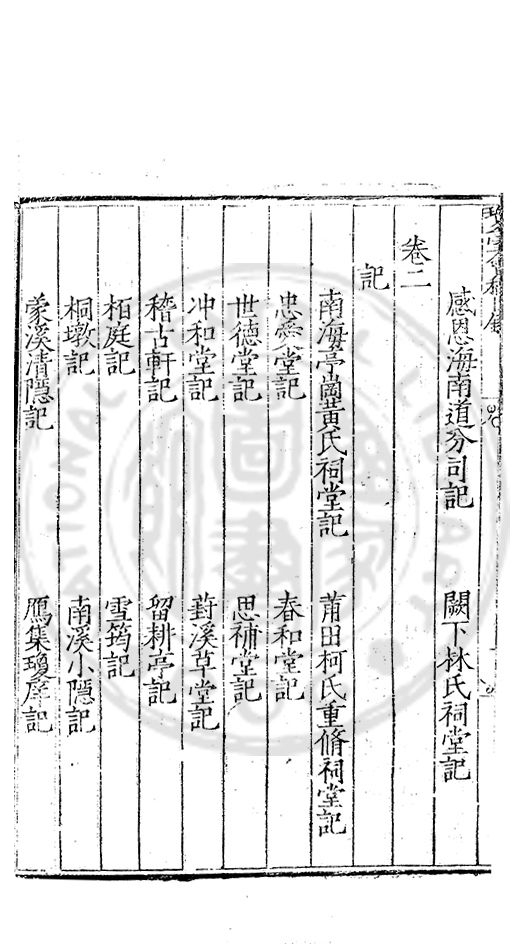 感恩海南道分司記　闕下林氏祠堂記
卷二
記
南海亭崗黃氏祠堂記　莆田柯氏重脩祠堂記
忠愛堂記　春和堂記
世德堂記　思補堂記
冲和堂記　葑溪草堂記
稽古軒記　留耕亭記
栢庭記　雪筠記
桐墩記　南溪小隱記
蒙溪清隱記　鴈集瓊庠記